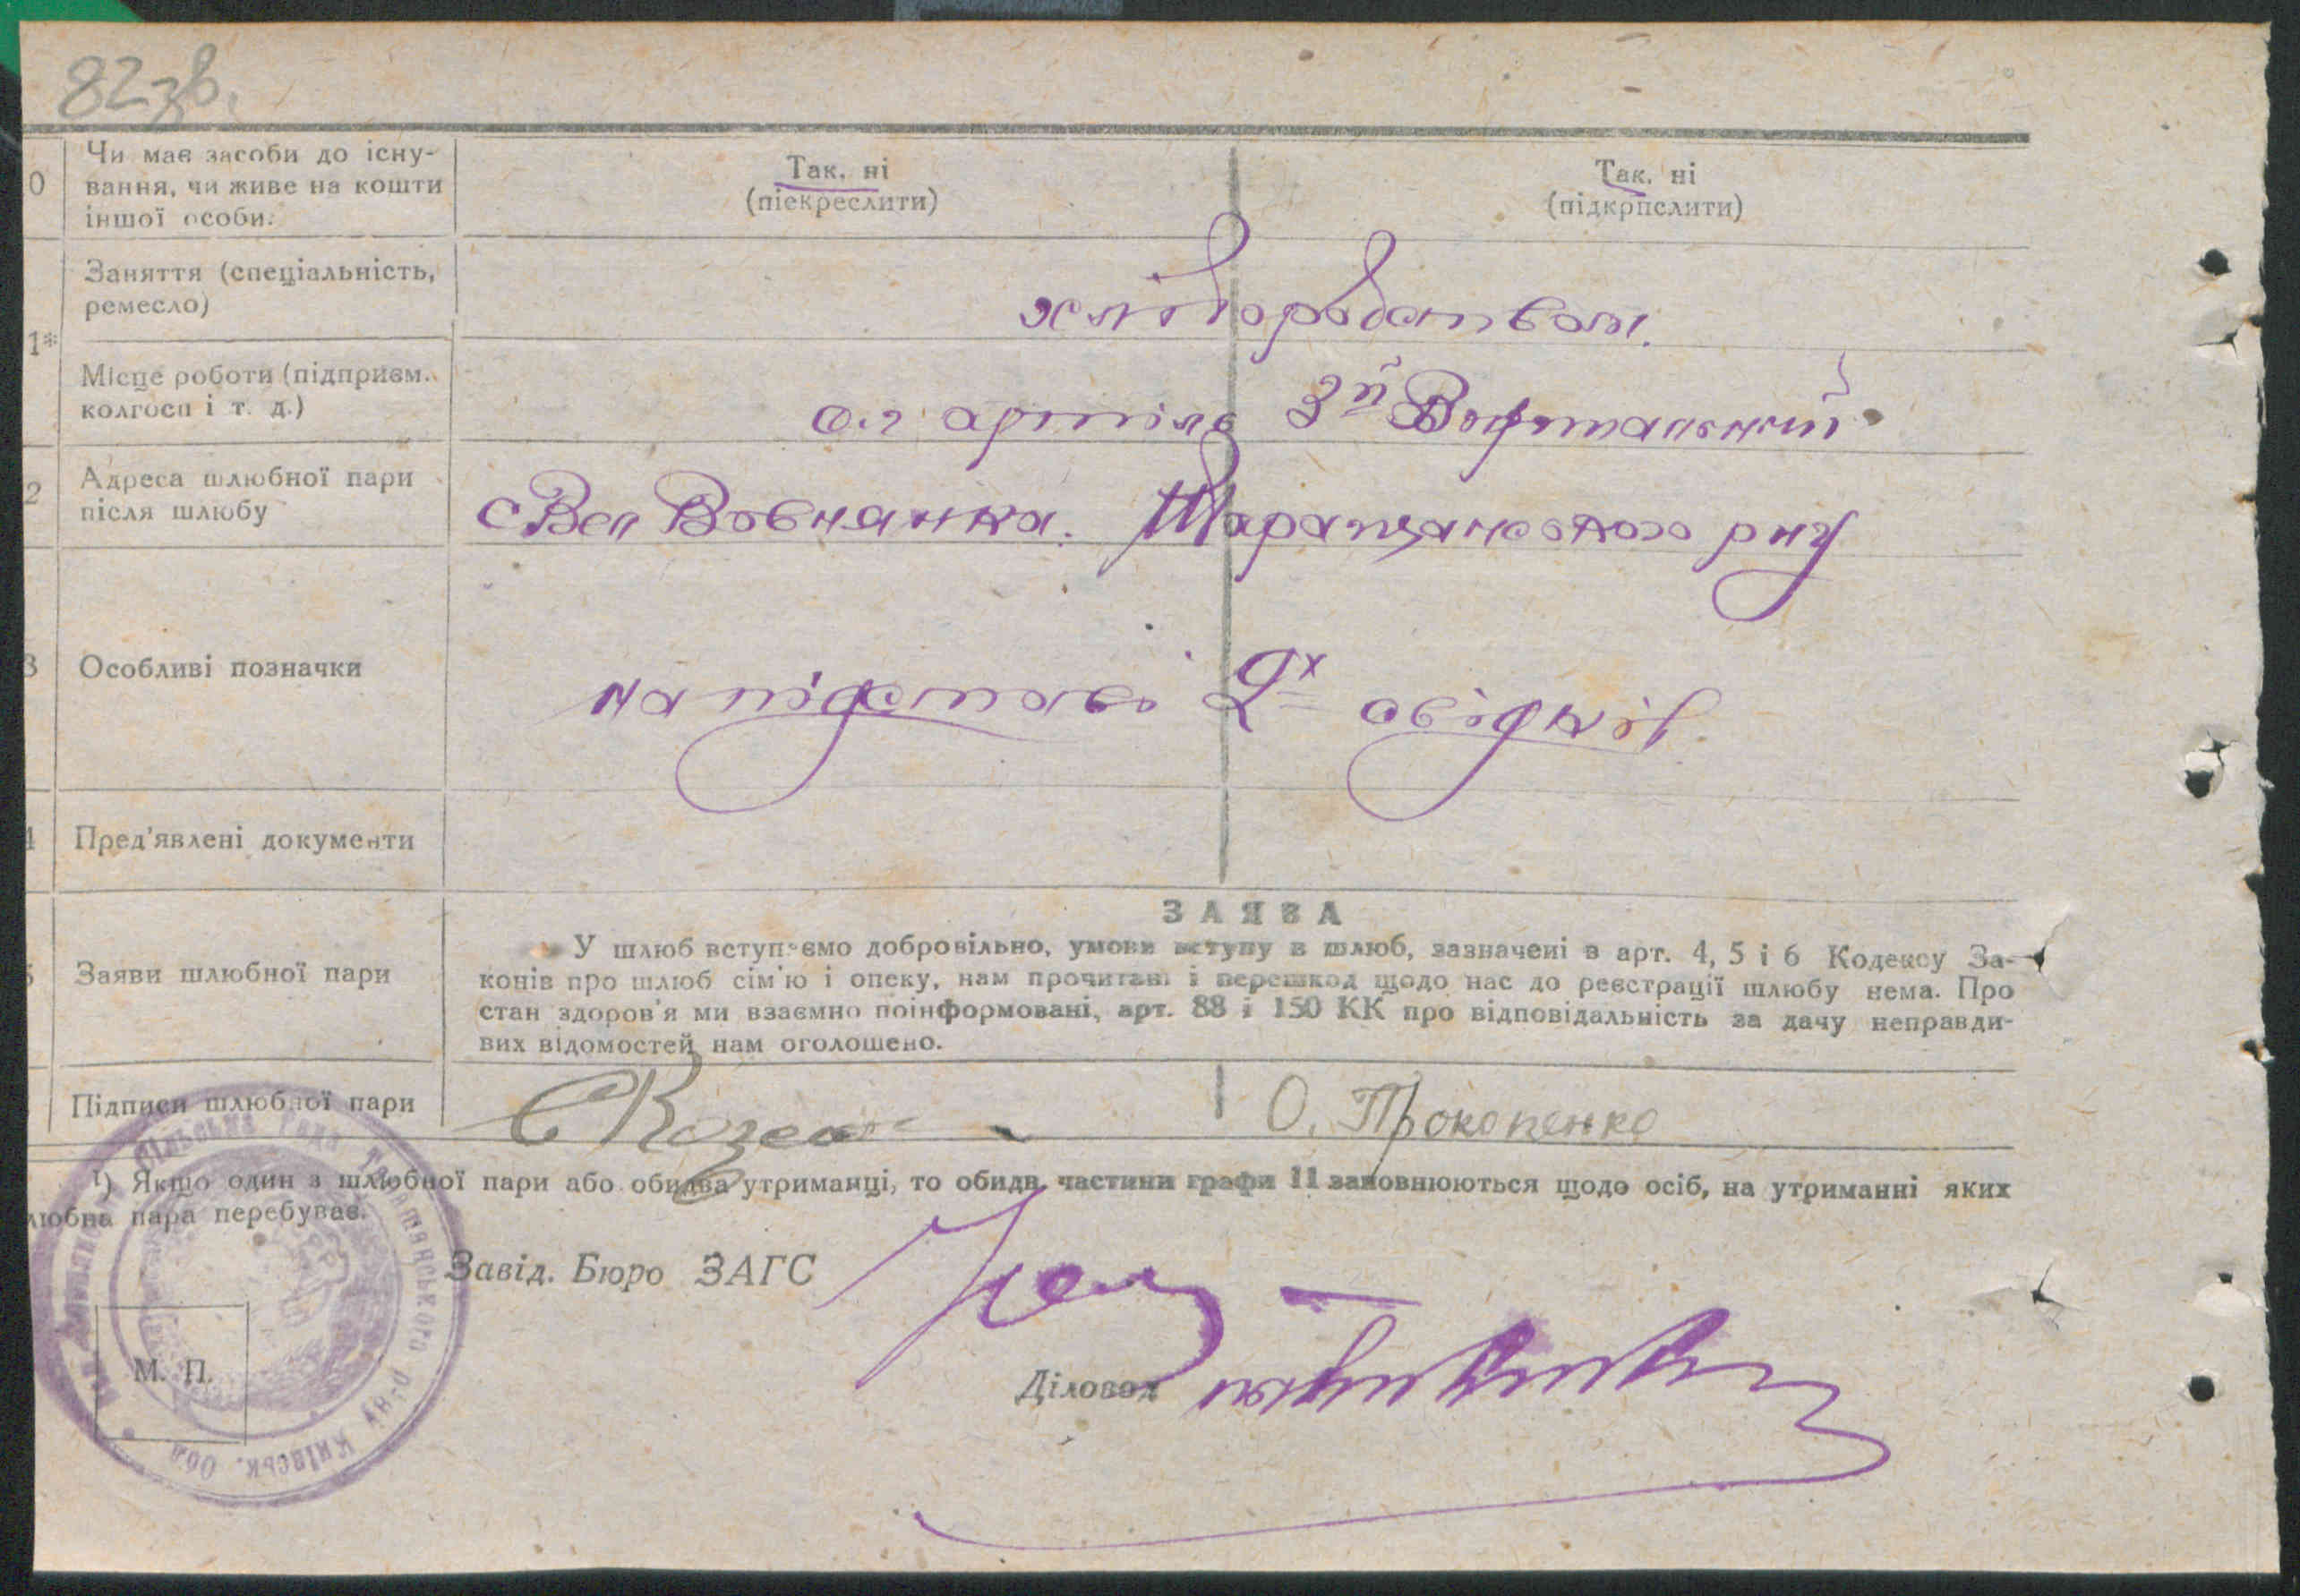 82зв.
0
Чи має засоби до існу-
вання, чи живе на кошти
іншої особи.
Так, ні
(піекреслити)
Так, ні
(підкрпслити)
1*
Заняття (спеціальність,
ремесло)
хліборобством.
Місце роботи (підприєм.
колгосп і т. д.)
с.г артіль 3й Вирішальний
2
Адреса шлюбної пари
після шлюбу
с Вел Вовнянка. Таращанського рну
3
Особливі позначки
на підставі 2х свідків
4
Пред'явлені документи
5
Заяви шлюбної пари
ЗАЯВА
У шлюб вступаємо добровільно, умови вступу в шлюб, зазначені в арт. 4, 5 і 6 Кодексу За-
конів про шлюб сім'ю і опеку, нам прочитані і перешкод щодо нас до реєстрації шлюбу нема. Про
стан здоров'я ми взаємно поінформовані, арт. 88 і 150 КК про відповідальність за дачу неправди-
вих відомостей нам оголошено.
Підписи шлюбної пари
О. Прокопенко
¹) Якщо один з шлюбної пари або обидва утриманці, то обидв. частини графи 11 заповнюються щодо осіб, на утриманні яких
любна пара перебуває.
Завід. Бюро ЗАГС
Діловод
М. П.
сільська Рада Таращанського р-ну Київськ. Обл